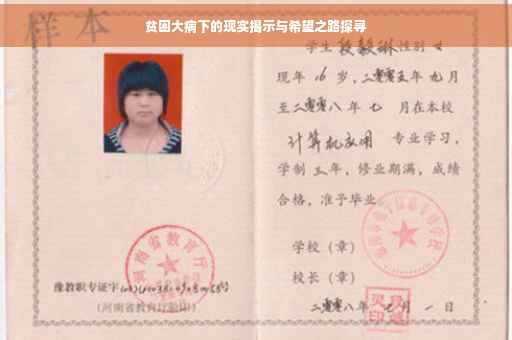 贫困大病下的现实揭示与希望之路探寻
样本
学生 段毅琳 性别 女
现年 16 岁，二零零五年 九 月
至二零零八 年 七 月在本校
计算机应用 专业学习，
学制 三 年，修业期满，成绩
合格，准予毕业
学校（章）
校长（章）
二零零八年 七 月 一 日
河南省教育厅
豫教职专证字
（河南省教育厅验印）